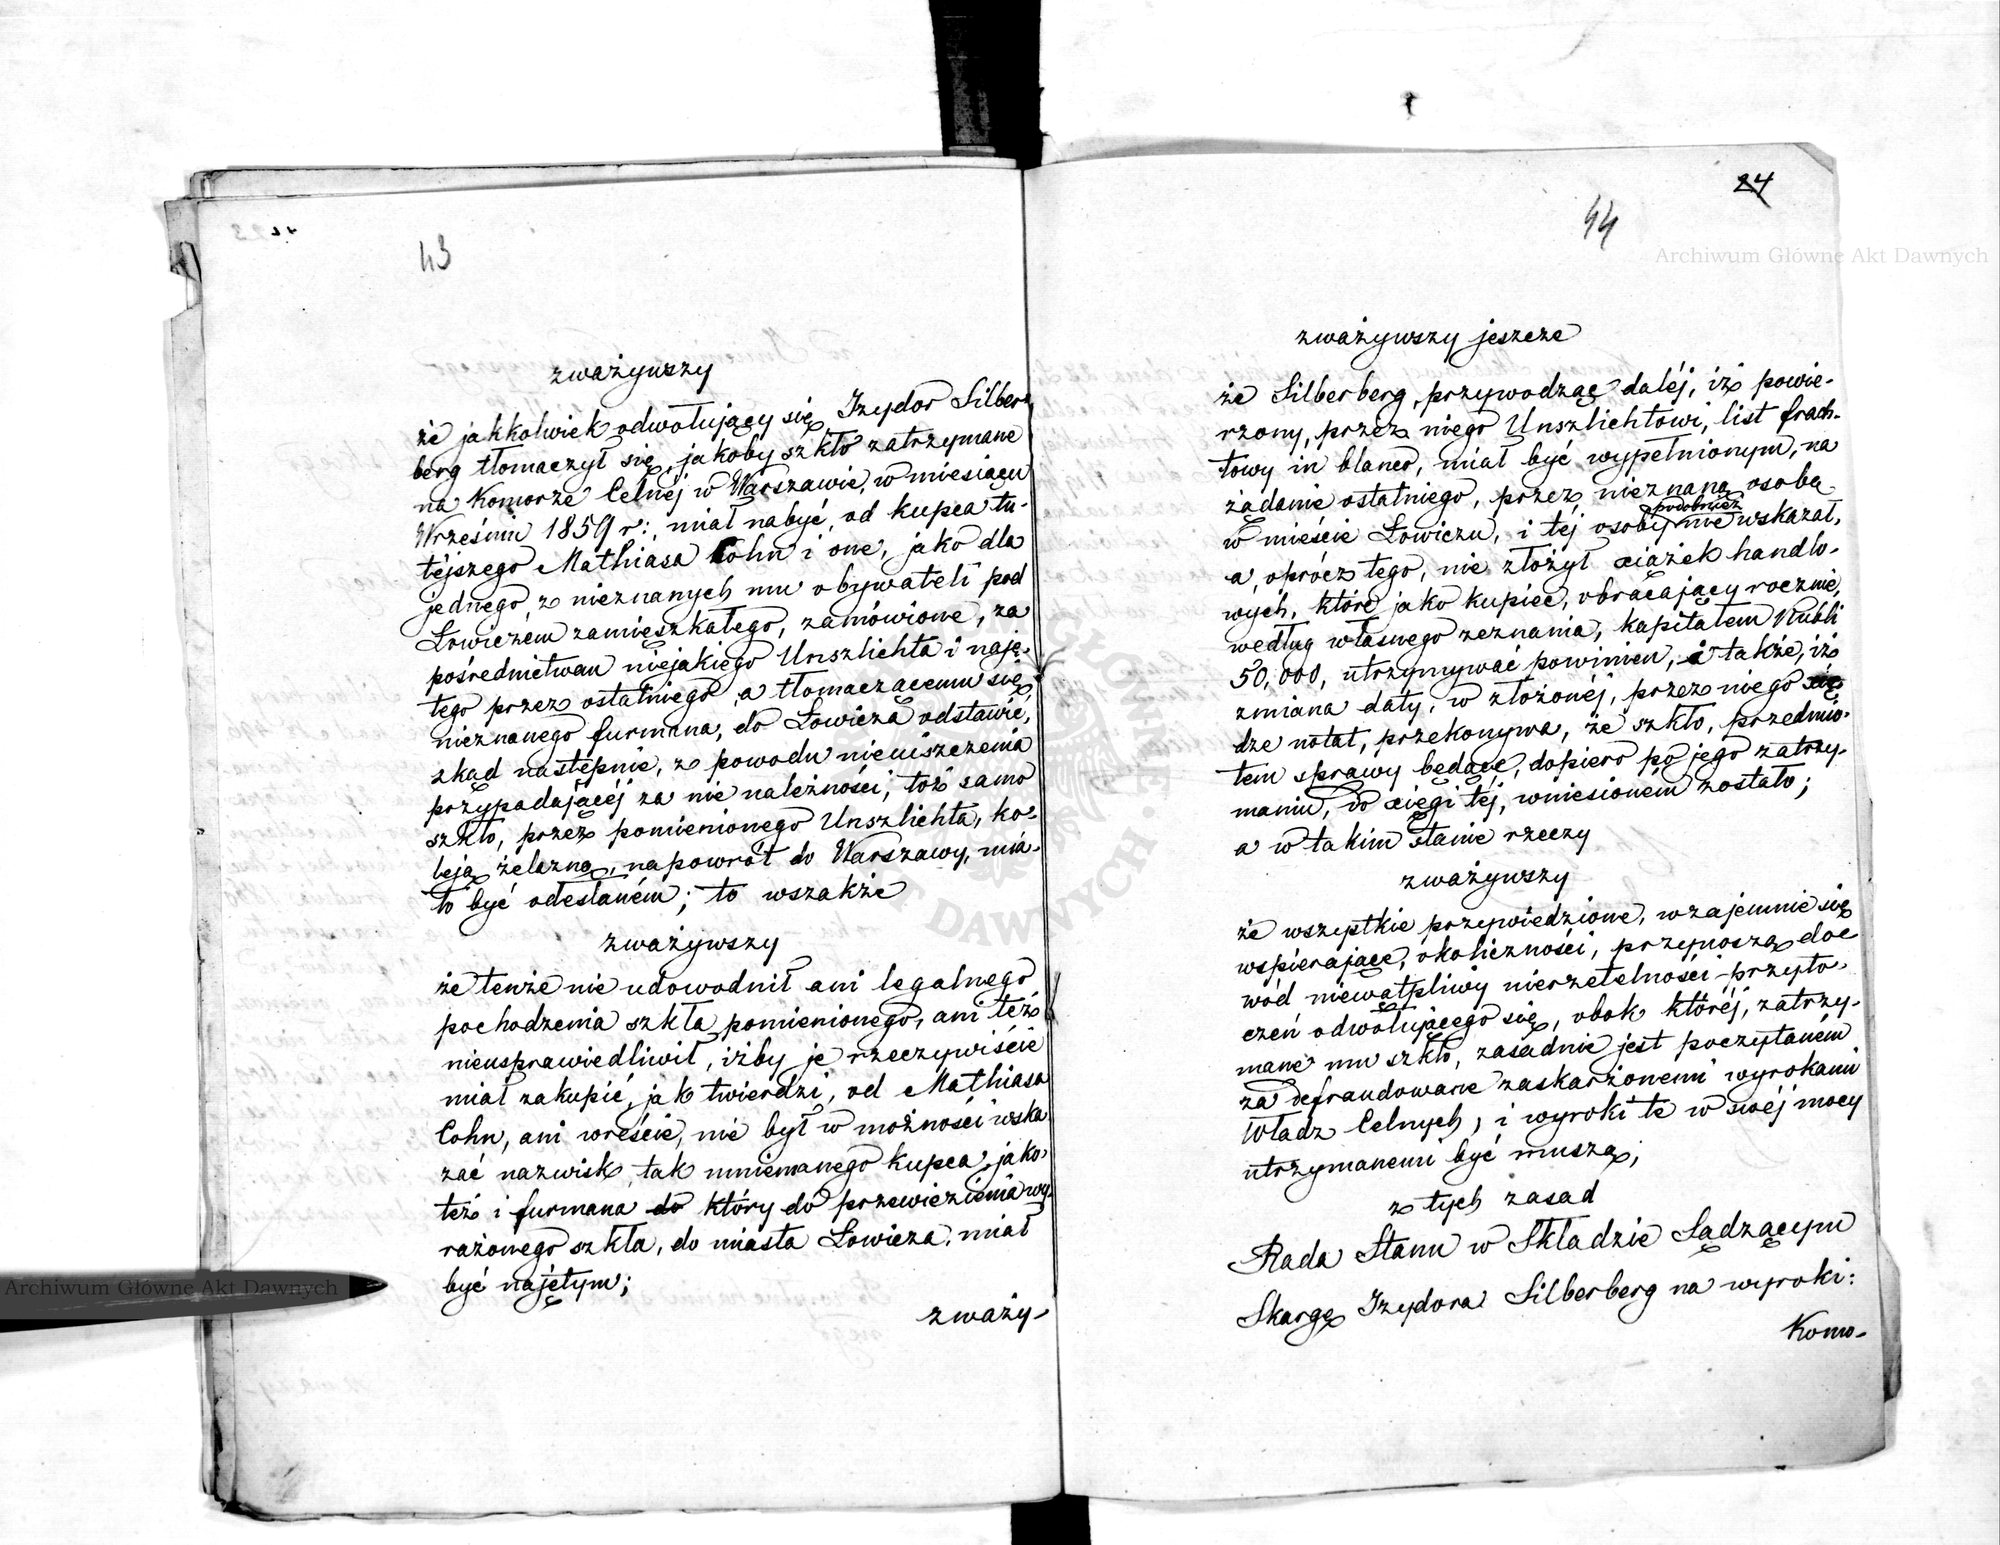 43
zważywszy
że jakkolwiek odwołujący się, Izydor Silber-
berg tłomaczył się, jakoby szkło zatrzymane
na Komorze Celnéj w Warszawie, w miesiącu
Wrześniu 1859 r:, miał nabyć, od kupca tu-
téjszego Mathiasa Cohn i one, jako dla
jednego, z nieznanych mu obywateli pod
Łowiczem zamieszkałego, zamówione, za
pośrednictwem niejakiego Unszlichta i naję-
tego przez ostatniego, a tłomaczącemu się,
nieznanego furmana, do Łowicza odstawić,
zkąd następnie, z powodu nieuiszczenia
przypadającéj za nie należności, toż samo
szkło, przez pomienionego Unszlichta, ko-
leją żelazną, napowrót do Warszawy, mia-
ło być odesłaném; to wszakże
zważywszy
że tenże nie udowodnił ani legalnego
pochodzenia szkła pomienionego, ani też
nieusprawiedliwił, iżby je rzeczywiście
miał zakupić, jak twierdzi, od Mathiasa
Cohn, ani wreście, nie był w możności wska
zać nazwisk, tak mniemanego kupca, jako-
też i furmana do który do przewiezienia wy-
rażonego szkła, do miasta Łowicza, miał
być najętym;
zważy-
24
44
zważywszy jeszcze
że Silberberg, przywodząc daléj, iż powie-
rzony, przez niego Unszlichtowi, list frach-
towy in blanco, miał być wypełnionym, na
żądanie ostatniego, przez nieznaną osobę
podobnież
w mieście Łowiczu, i téj osoby nie wskazał,
a, oprócz tego, nie złożył xiążek handlo-
wych, które jako kupiec, obracający rocznie,
według własnego zeznania, kapitałem Rubli
50,000, utrzymywać powinien, a także, iż
zmiana daty, w złożonéj, przez niego xię
dze notat, przekonywa, że szkło, przedmio-
tem sprawy będące, dopiero po jego zatrzy-
maniu, do xięgi téj, wniesioném zostało;
a w takim stanie rzeczy
zważywszy
że wszystkie przywiedzione, wzajemnie się
wspierające, okoliczności, przynoszą do
wód niewątpliwy nierzetelności przyto-
czeń odwołującego się, obok któréj, zatrzy-
mane mu szkło, zasadnie jest poczytaném
za defraudowane zaskarżonemi wyrokami
Władz Celnych, i wyroki te w swéj mocy
utrzymanemi być muszą;
z tych zasad
Rada Stanu w Składzie Sądzącym
Skargę Izydora Silberberg na wyroki:
Komo-
Archiwum Główne Akt Dawnych
Archiwum Główne Akt Dawnych